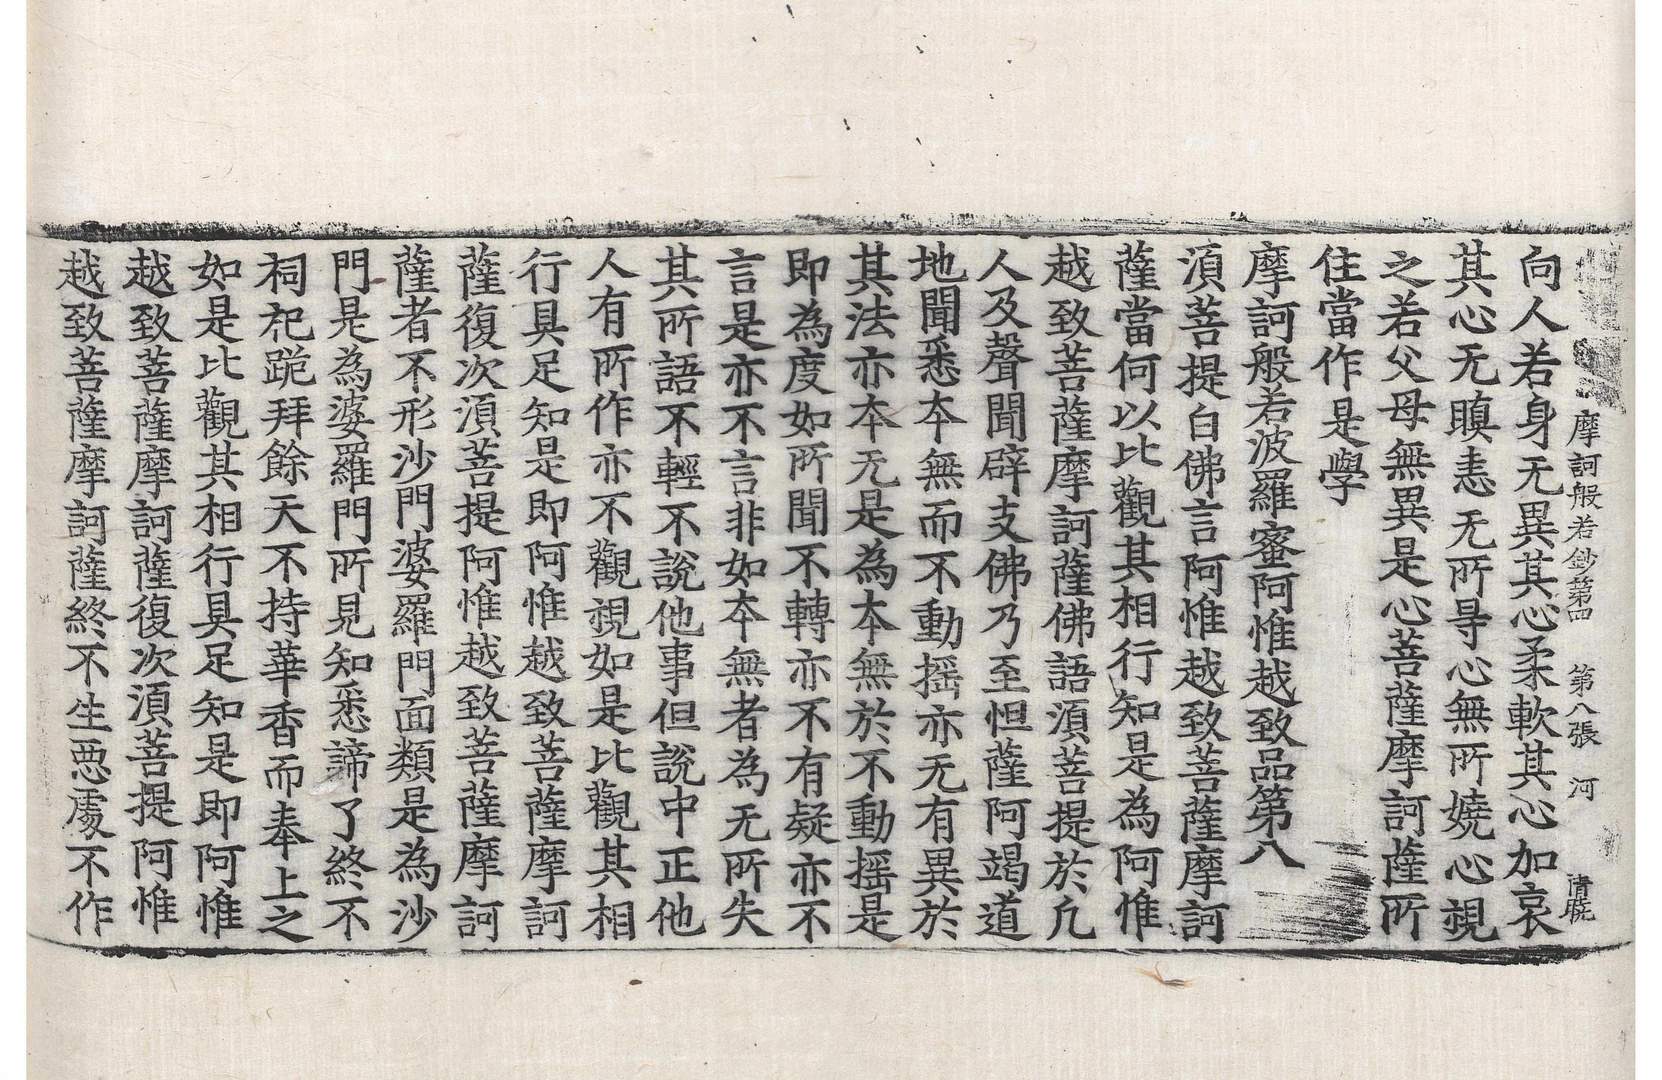 摩訶般若鈔第四　第八張　河　清曉
向人若身无異其心柔軟其心加哀
其心无瞋恚无所㝵心無所嬈心視
之若父母無異是心菩薩摩訶薩所
住當作是學
摩訶般若波羅蜜阿惟越致品第八
湏菩提白佛言阿惟越致菩薩摩訶
薩當何以比觀其相行知是為阿惟
越致菩薩摩訶薩佛語湏菩提於凢
人及聲聞辟支佛乃至怛薩阿竭道
地聞悉夲無而不動摇亦无有異於
其法亦夲无是為夲無於不動摇是
即為度如所聞不轉亦不有疑亦不
言是亦不言非如夲無者為无所失
其所語不輕不說他事但說中正他
人有所作亦不觀視如是比觀其相
行具足知是即阿惟越致菩薩摩訶
薩復次湏菩提阿惟越致菩薩摩訶
薩者不形沙門婆羅門面類是為沙
門是為婆羅門所見知悉諦了終不
祠祀跪拜餘天不持華香而奉上之
如是比觀其相行具足知是即阿惟
越致菩薩摩訶薩復次湏菩提阿惟
越致菩薩摩訶薩終不生惡處不作